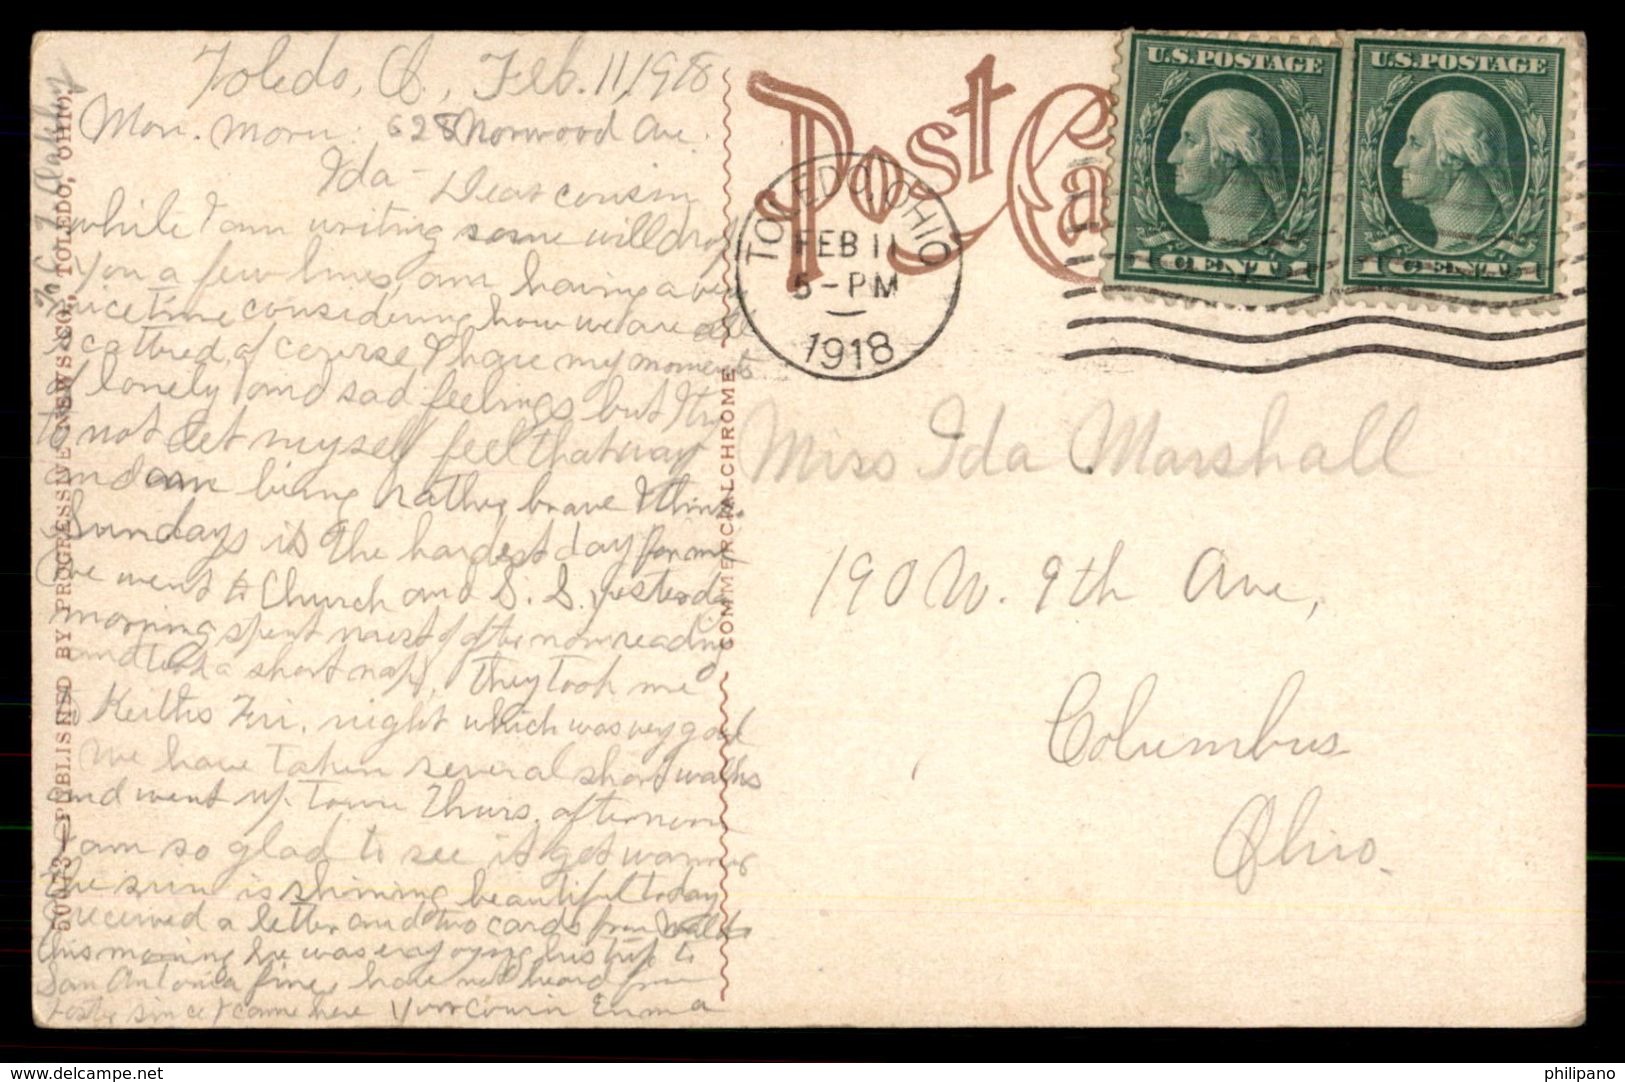 Toledo, O., Feb. 11, 1918
Mon. Morn. 628 Norwood Ave.
Ida - Dear cousin
while I am writing some will drop
you a few lines, am having a very
nice time considering how we are all
scattred, of course I have my moments
of lonely and sad feelings but I try
to not let myself feel that way
and am being rather brave I think.
Sundays is the hardest day for me
we went to Church and S. S. yesterday
morning spent most of afternoon reading
and took a short nap, They took me
to Keiths Fri. night which was very good
We have taken several short walks
and went up town Thurs. afternoon
I am so glad to see it get warmer
the sun is shining beautiful today
I received a letter and two cards from
this morning he was enjoying his trip to
San Antonia fine, have not heard from
since I came here Your Cousin Emma
50073 — PUBLISHED BY PROGRESSIVE NEWS CO., TOLEDO, OHIO.
COMMERCIALCHROME
Post Ca
U.S. POSTAGE
1 CENT 1
U.S. POSTAGE
1 CENT 1
TOLEDO, OHIO
FEB 11
5-PM
1918
Miss Ida Marshall
190 W. 9th Ave,
Columbus
Ohio.
www.delcampe.net
philipano